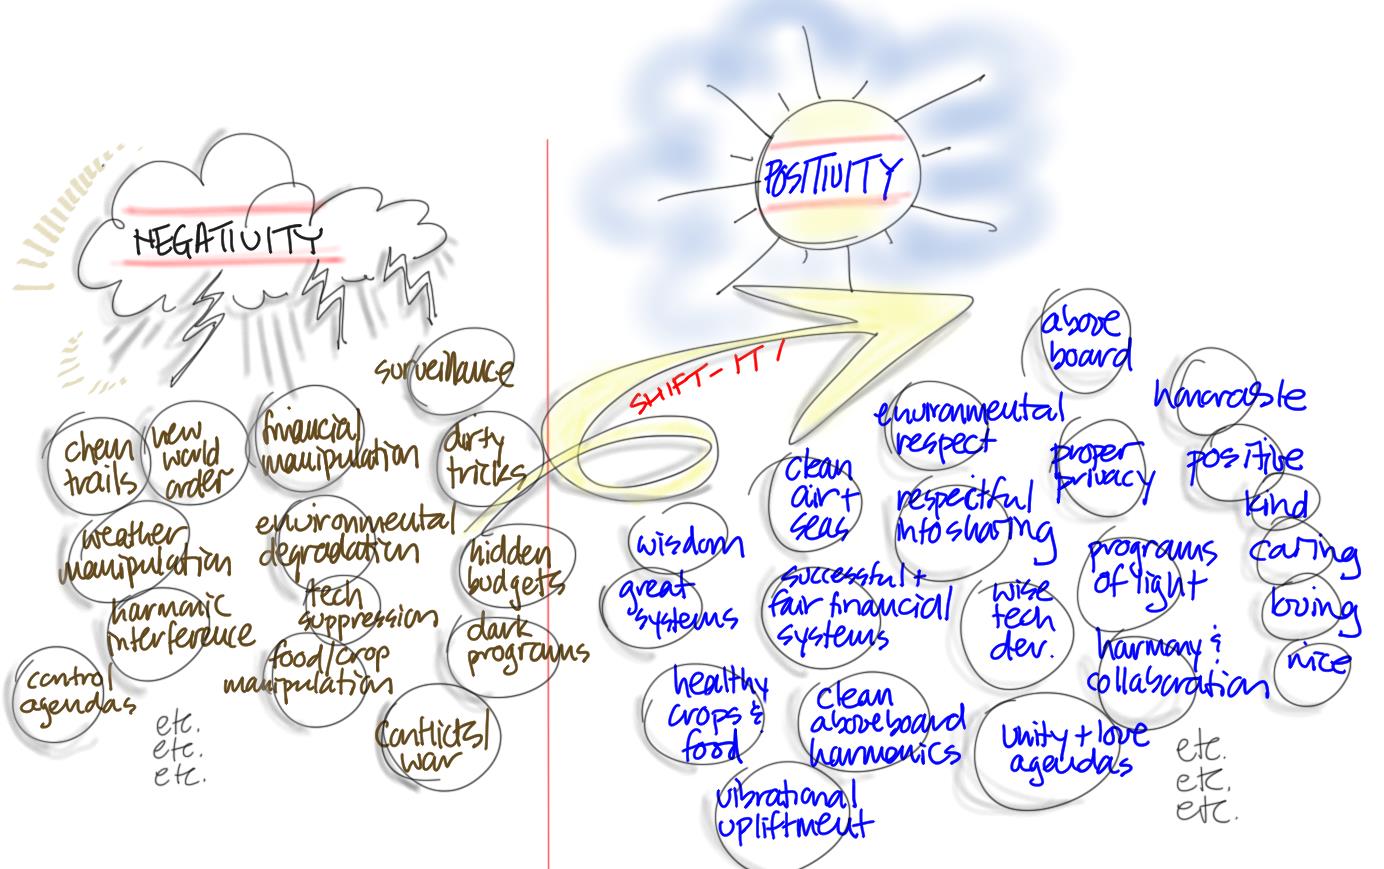 NEGATIVITY
surveillance
chem
trails
new
world
order
financial
manipulation
dirty
tricks
weather
manipulation
environmental
degradation
hidden
budgets
harmonic
interference
tech
suppression
dark
programs
control
agendas
food/crop
manipulation
conflicts/
war
etc.
etc.
etc.
SHIFT-IT!
POSITIVITY
above
board
environmental
respect
proper
privacy
positive
kind
caring
loving
nice
clean
air +
seas
respectful
info sharing
programs
of light
wisdom
great
systems
successful +
fair financial
systems
wise
tech
dev.
harmony &
collaboration
healthy
crops &
food
clean
aboveboard
harmonics
unity + love
agendas
vibrational
upliftment
etc.
etc.
etc.